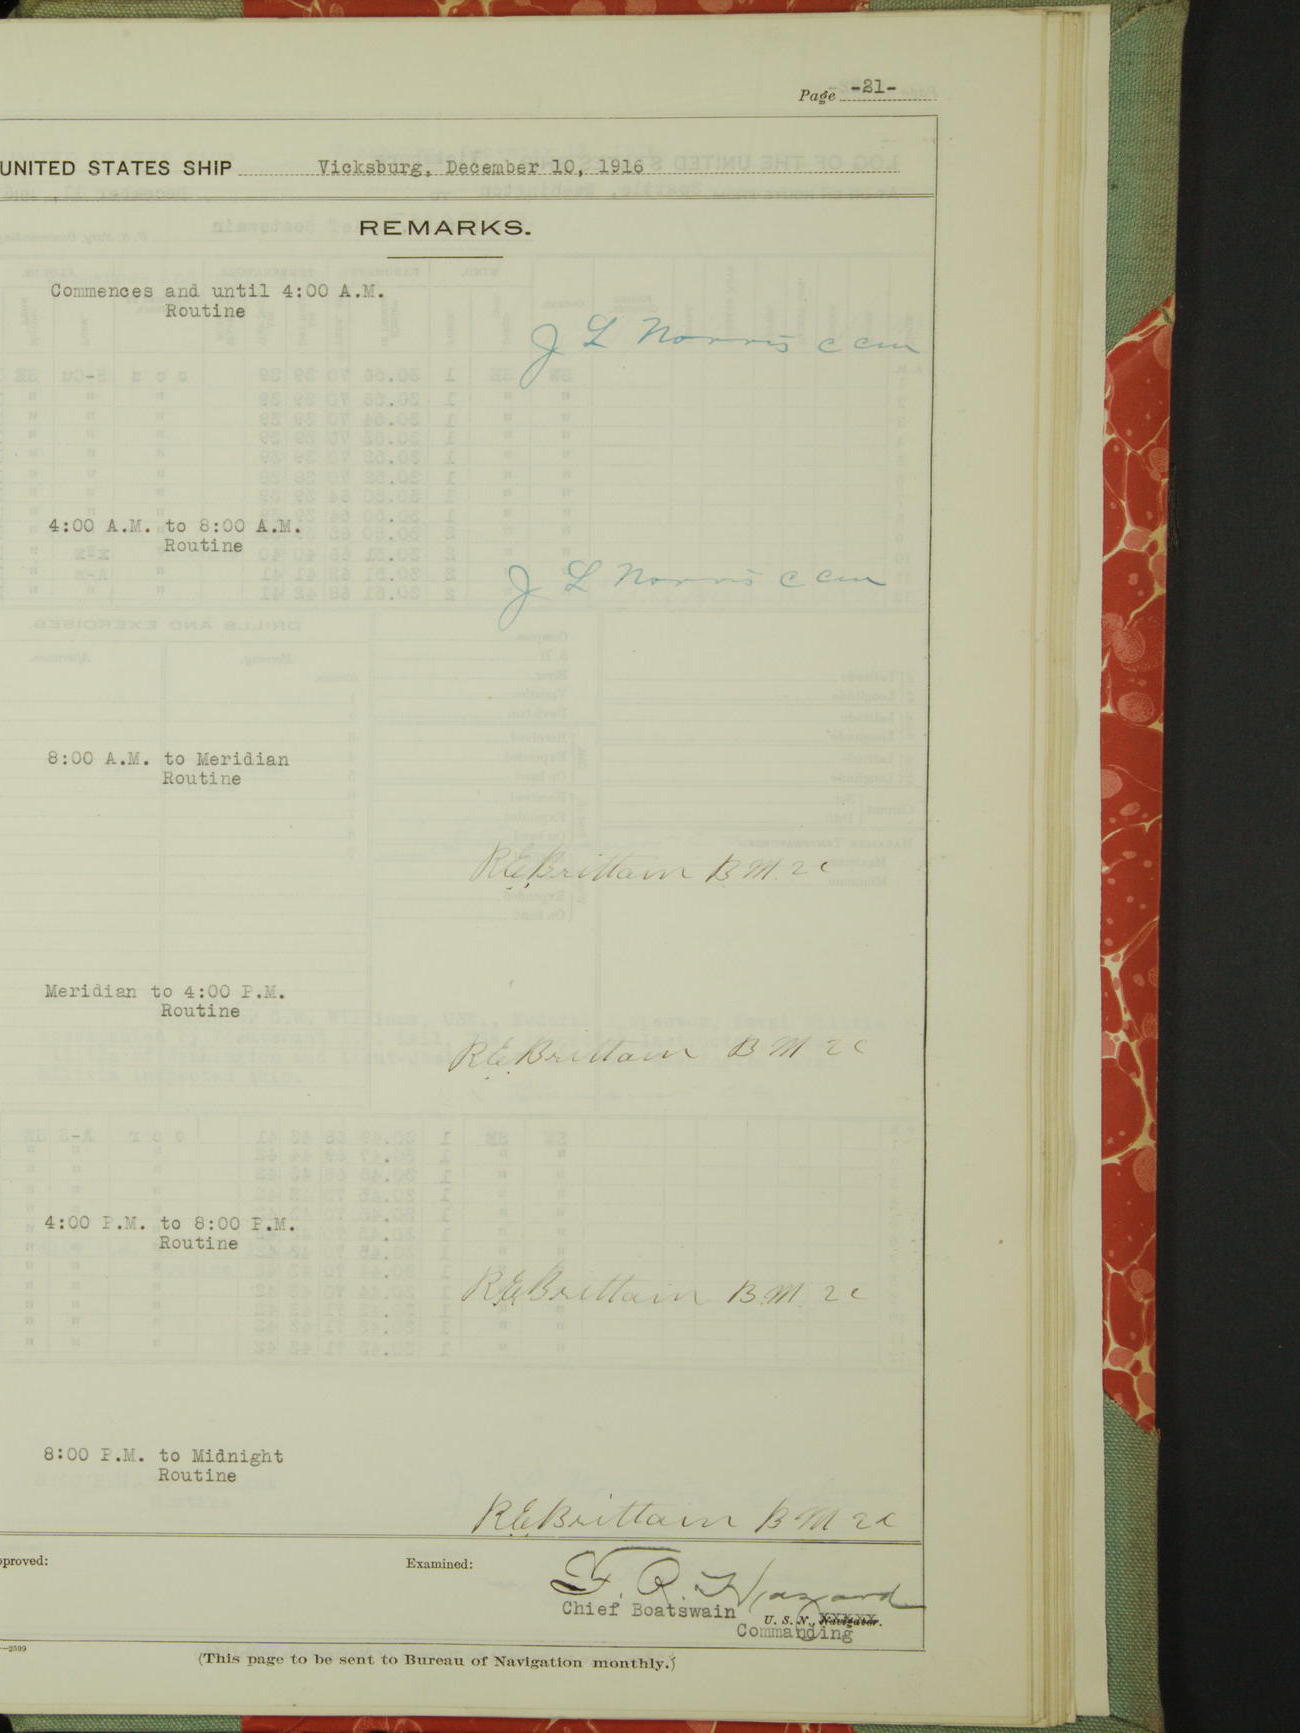 Page -21-
UNITED STATES SHIP Vicksburg, December 10, 1916
REMARKS.
Commences and until 4:00 A.M.
Routine
J L Norris C CM
4:00 A.M. to 8:00 A.M.
Routine
J L Norris C CM
8:00 A.M. to Meridian
Routine
R.E. Brittain B.M. 2c
Meridian to 4:00 P.M.
Routine
R.E. Brittain B M 2c
4:00 P.M. to 8:00 P.M.
Routine
R.E. Brittain B.M. 2c
8:00 P.M. to Midnight
Routine
R.E. Brittain B M 2c
pproved:
Examined:
F. R. Hazard
Chief Boatswain
U. S. N., Navigator.
Commanding
—2599
(This page to be sent to Bureau of Navigation monthly.)